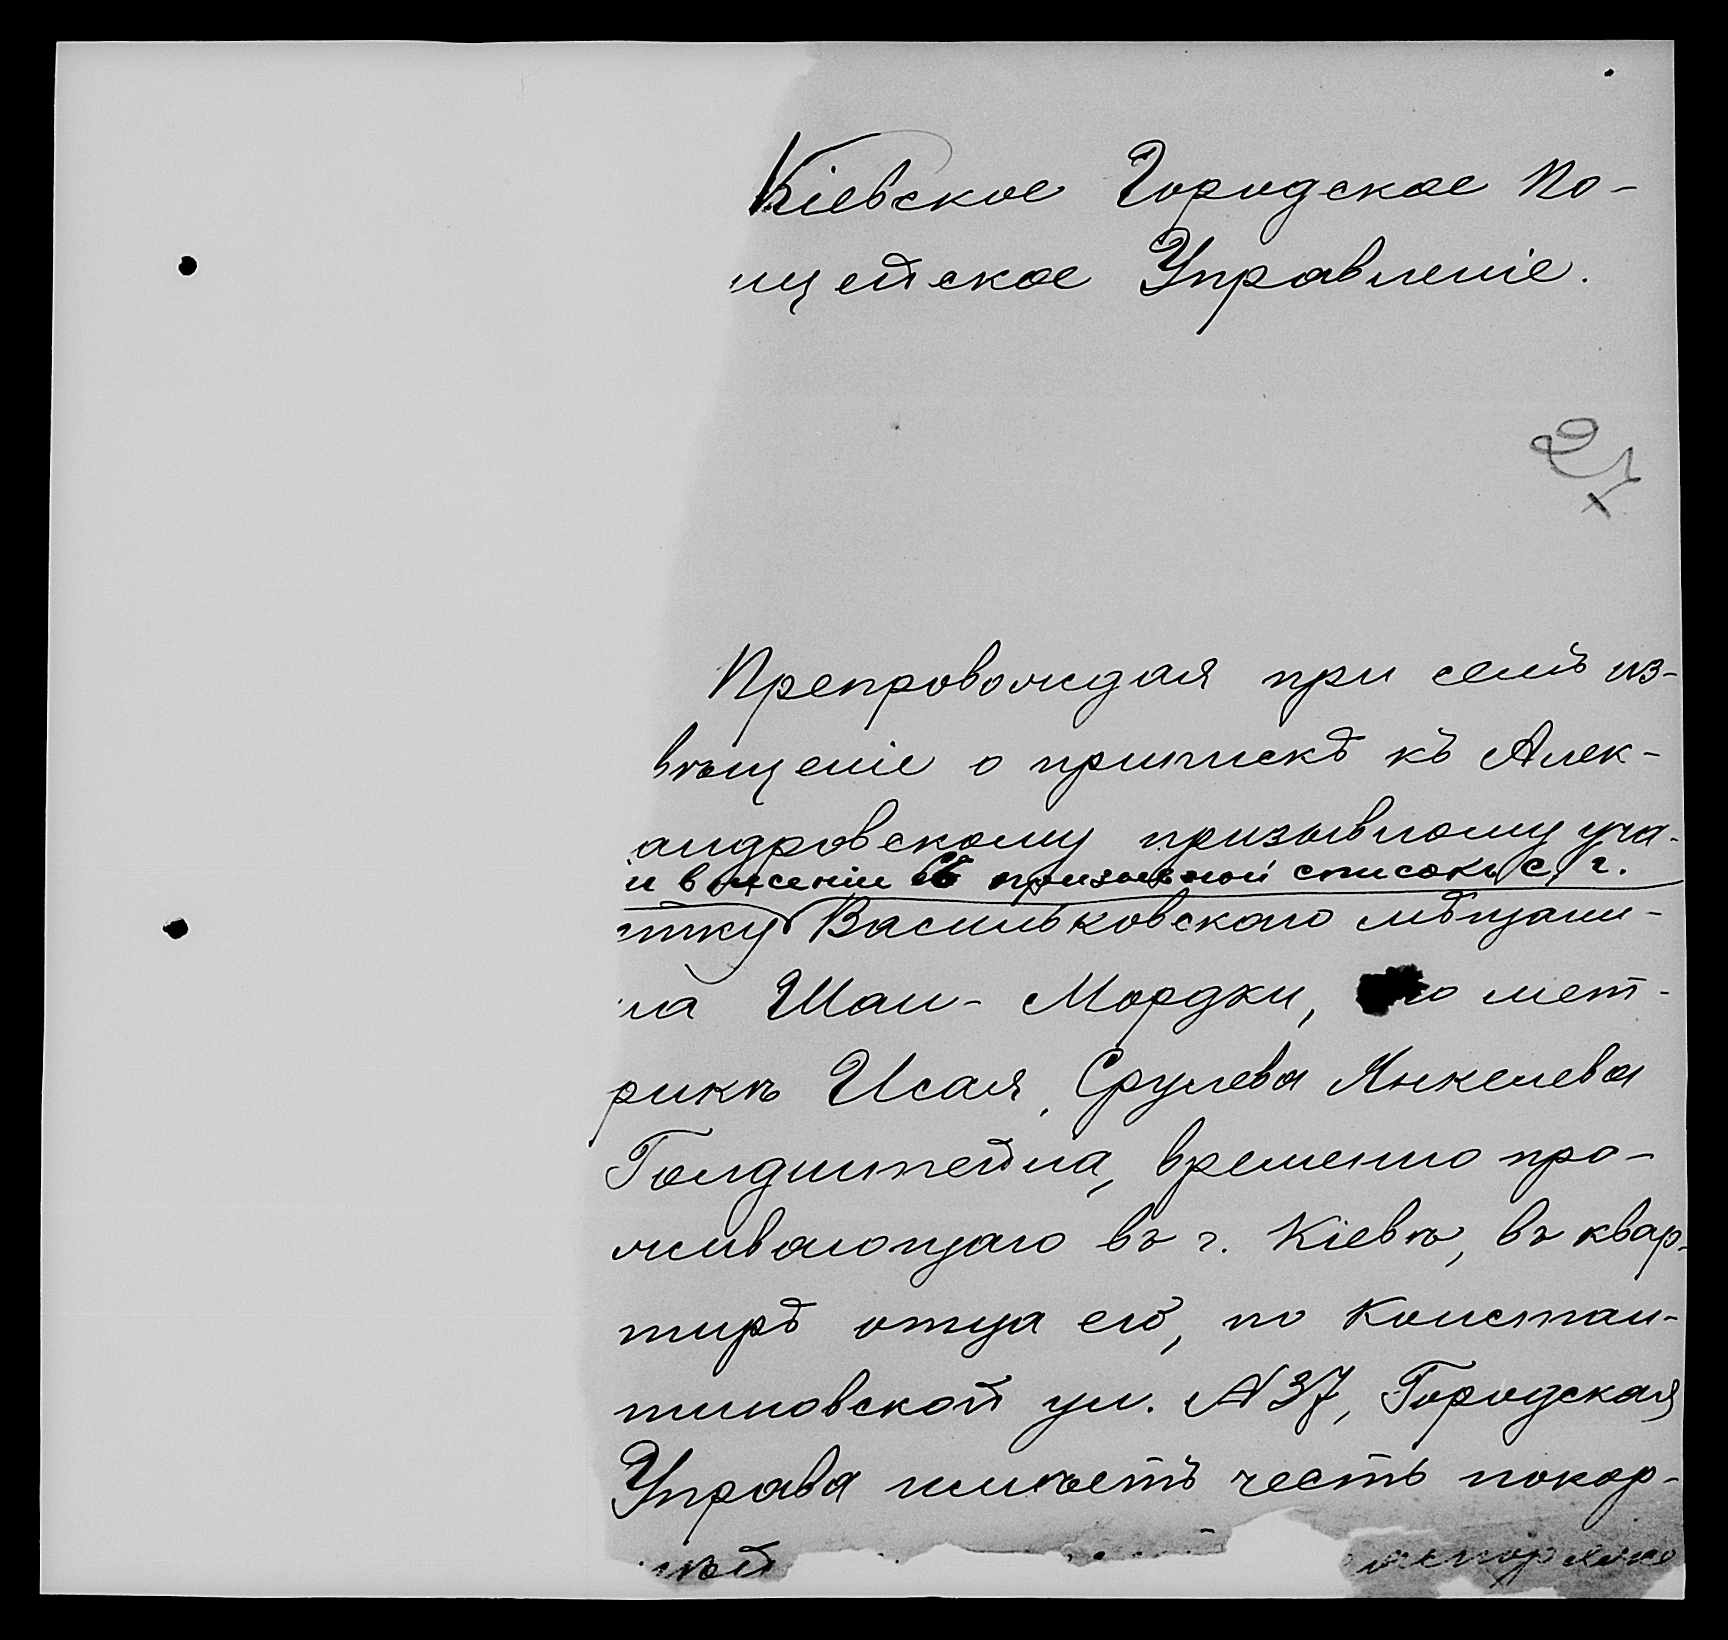 Кіевское Городское По-
ицейское Управленіе.
27
Препровождая при семъ из-
вѣщеніе о припискѣ къ Алек-
андровскому призывному уча-
и внесеніи въ призывной списокъ с. г.
тку Васильковскаго мѣщани-
на Шаи-Мордки, по мет-
рикѣ Исая, Срулева Янкелева
Голдштейна, временно про-
живающаго въ г. Кіевѣ, въ квар-
тирѣ отца его, по Констан-
тиновской ул. №37, Городская
Управа имѣетъ честь покор-
нѣй